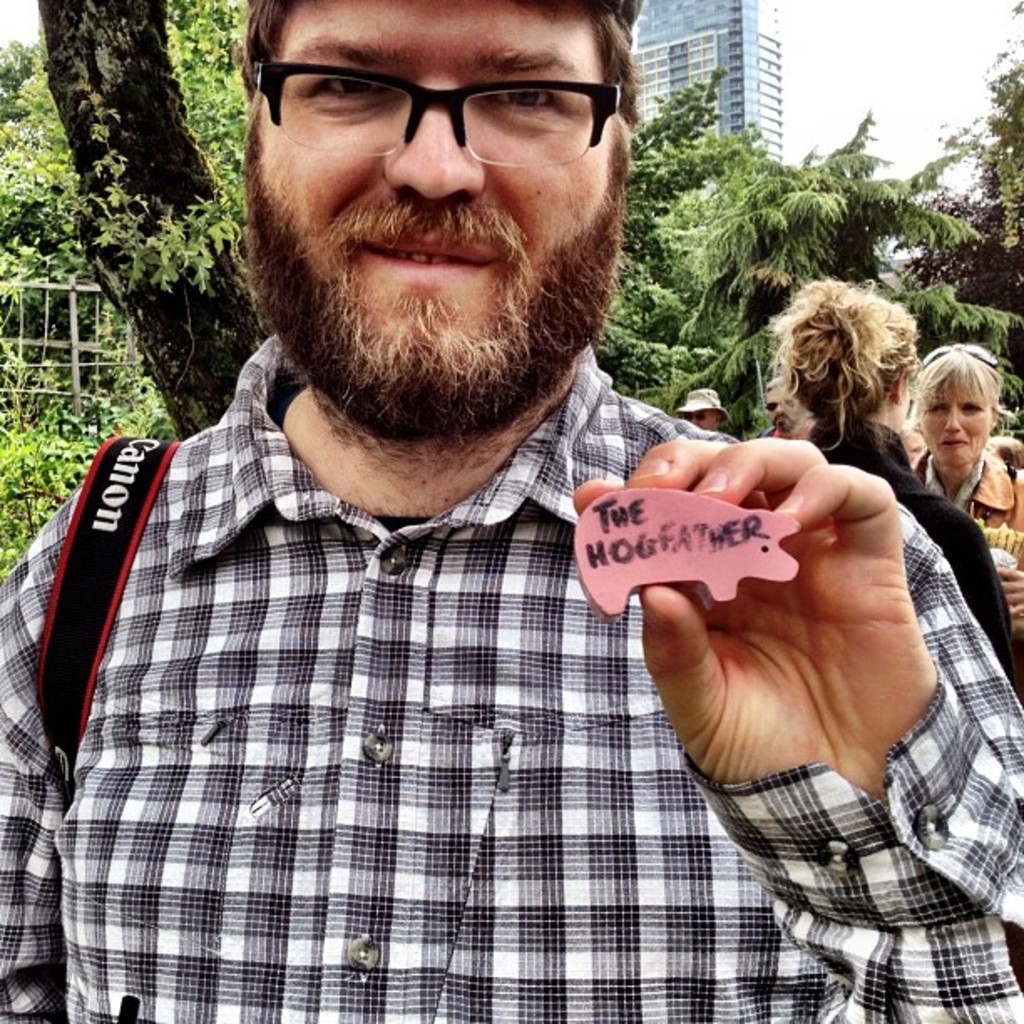 Canon
THE
HOGFATHER